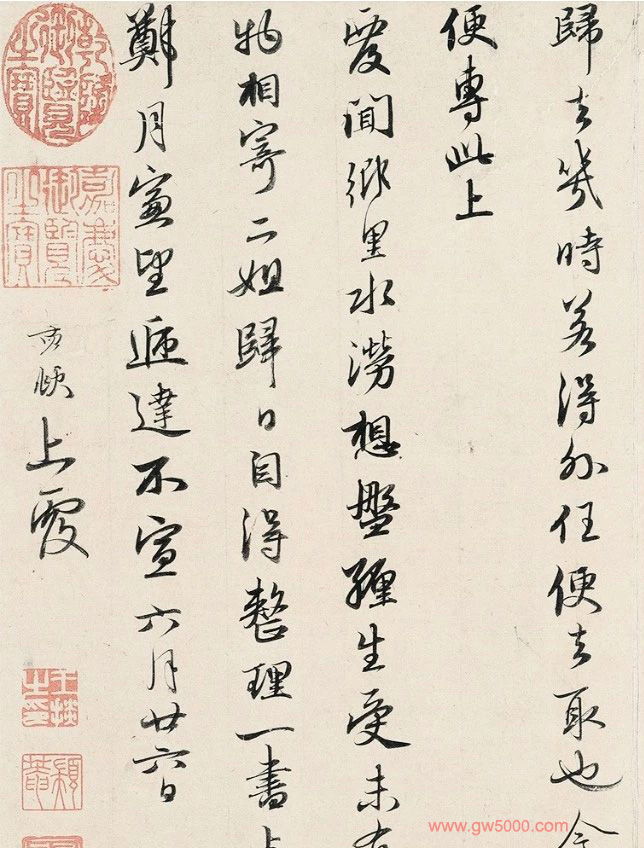 歸去幾時若得外任便去取也今
便專此上
覆聞鄉里水澇想盤纏生受未有
物相寄二姐歸日自得整理一書上
鄭月窗望遞達不宣六月廿六日
孟頫上覆
乾隆御覽之寶
嘉慶御覽之寶
王掞之印
顓菴
www.gw5000.com